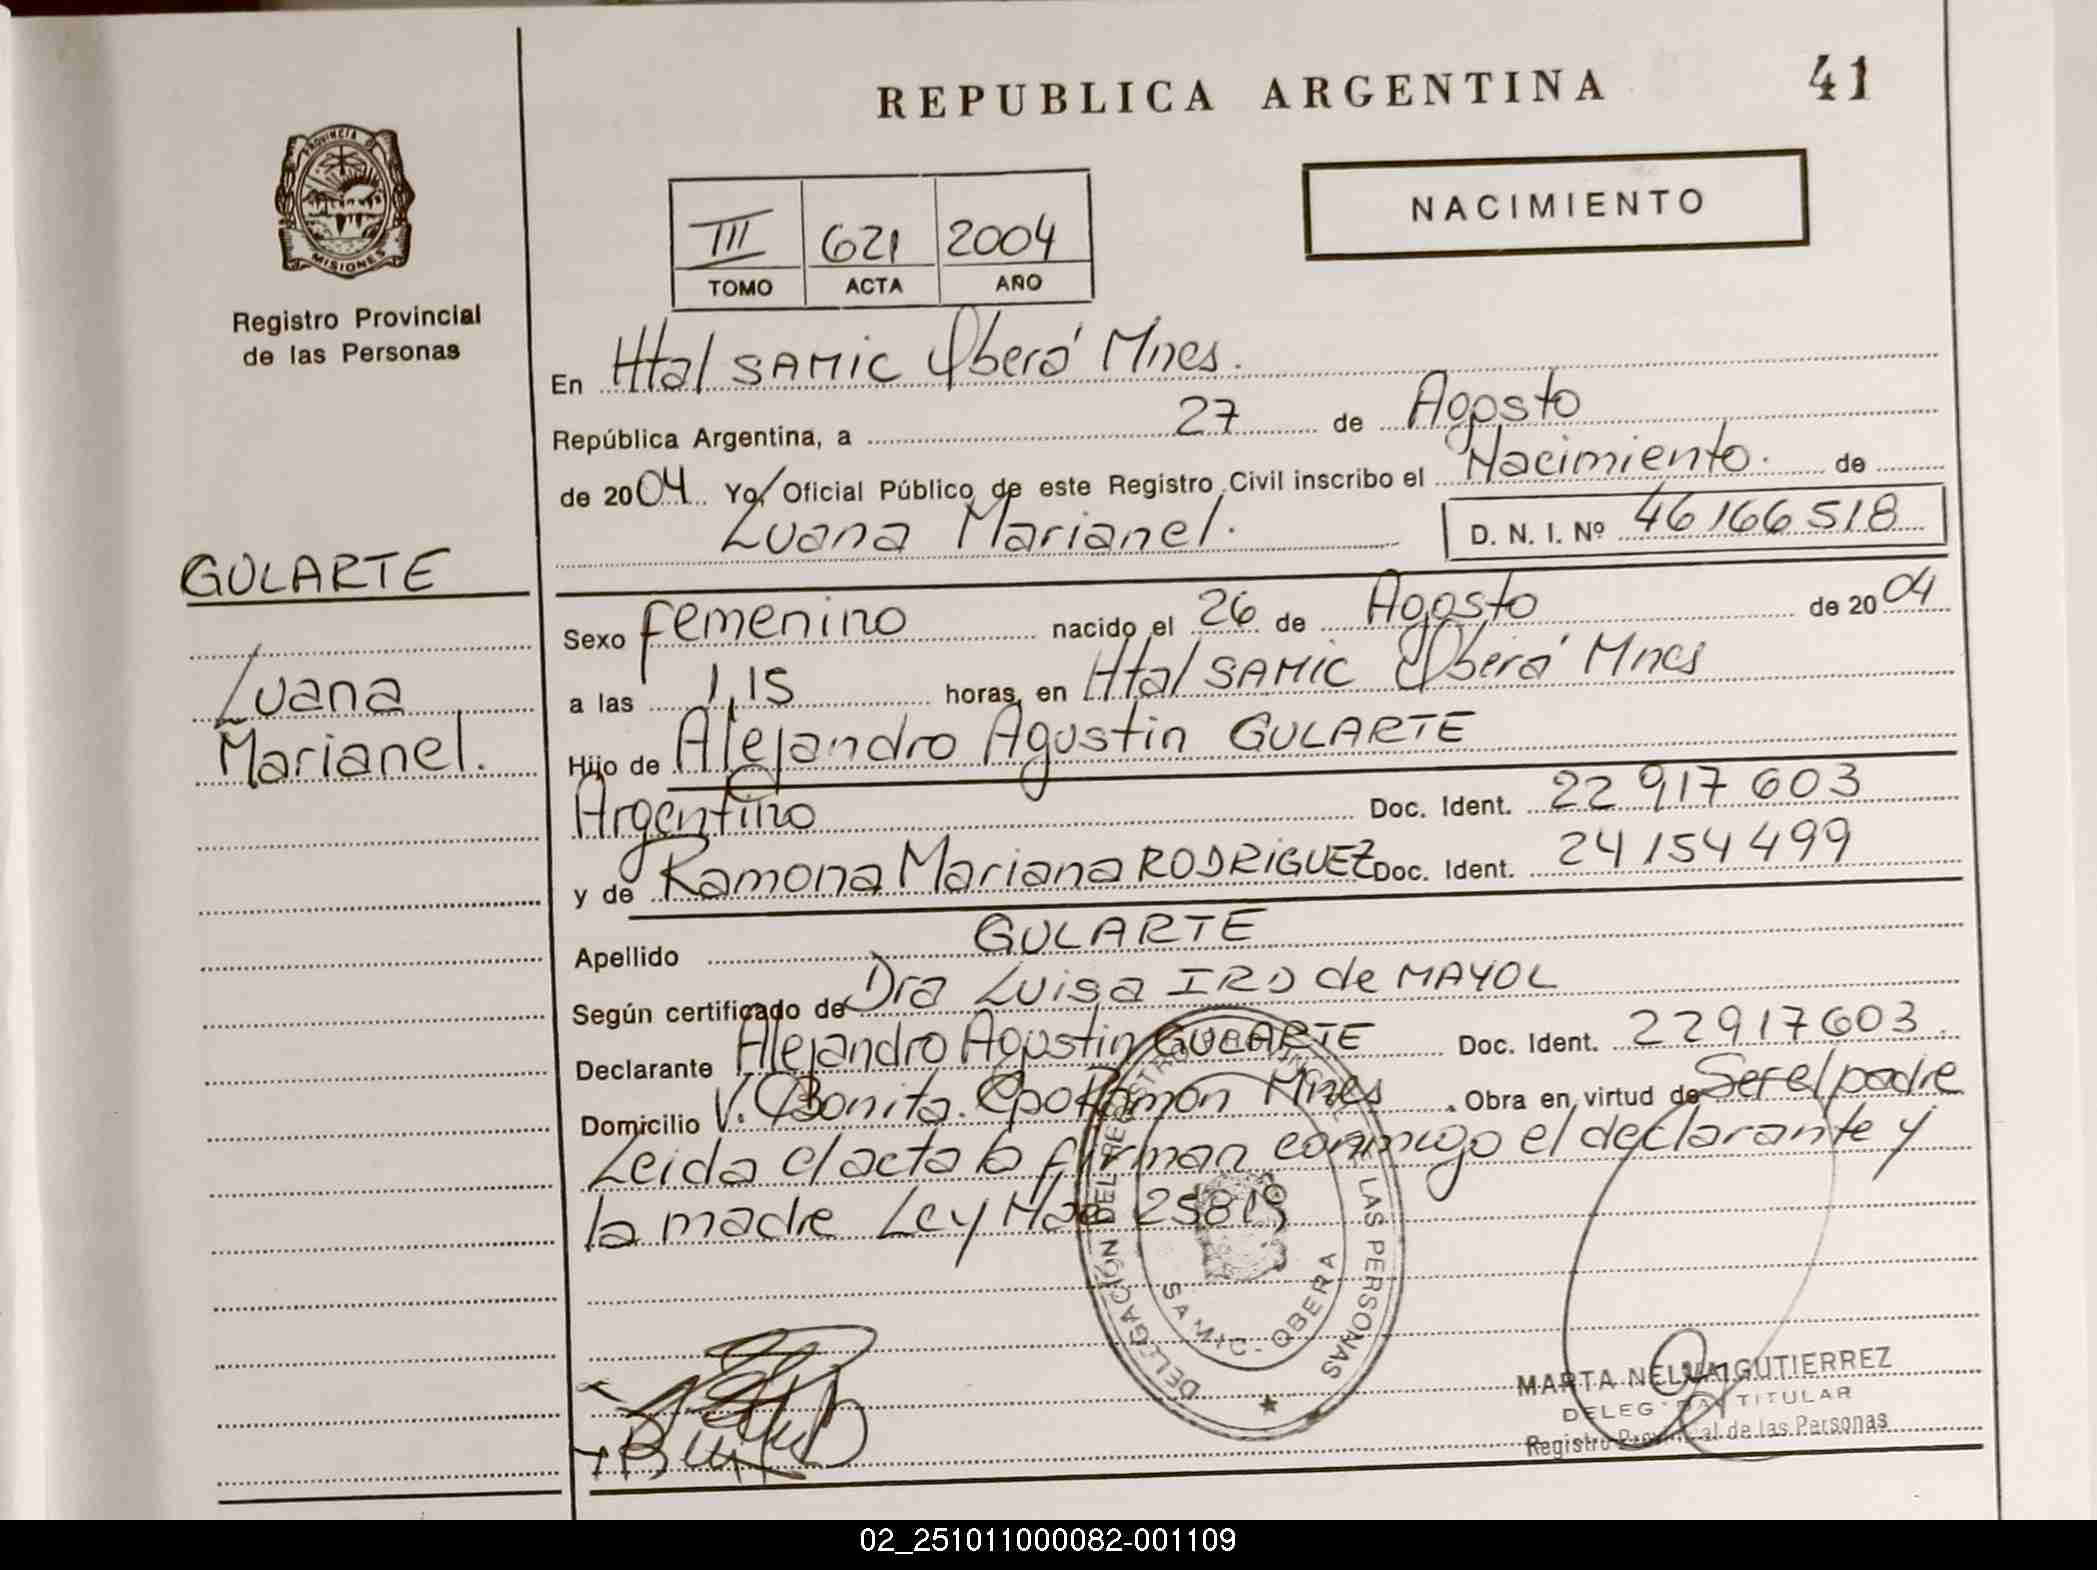 REPUBLICA ARGENTINA
41
PROVINCIA DE
MISIONES
Registro Provincial
de las Personas
NACIMIENTO
III 621 2004
TOMO ACTA AÑO
En Htal SAMIC Oberá Mnes.
República Argentina, a 27 de Agosto
de 2004 Yo, Oficial Público de este Registro Civil inscribo el Nacimiento. de
Luana Marianel.
D. N. I. Nº 46166518
GULARTE
Luana
Marianel.
Sexo femenino nacido el 26 de Agosto de 2004
a las 1,15 horas, en Htal SAMIC Oberá Mnes
Hijo de Alejandro Agustin GULARTE
Argentino Doc. Ident. 22 917 603
y de Ramona Mariana RODRIGUEZ Doc. Ident. 24 154 499
Apellido GULARTE
Según certificado de Dra Luisa IRD de MAYOL
Declarante Alejandro Agustin GULARTE Doc. Ident. 22917603
Domicilio V. Bonita. Cpo Ramon Mnes . Obra en virtud de Ser el padre
Leida el acta la firman conmigo el declarante y
la madre Ley 25819
DELEGACIÓN DEL REGISTRO PROVINCIAL DE LAS PERSONAS
SAMIC - OBERA
MARTA NELIDA GUTIERREZ
DELEGADA TITULAR
Registro Provincial de las Personas
02_251011000082-001109